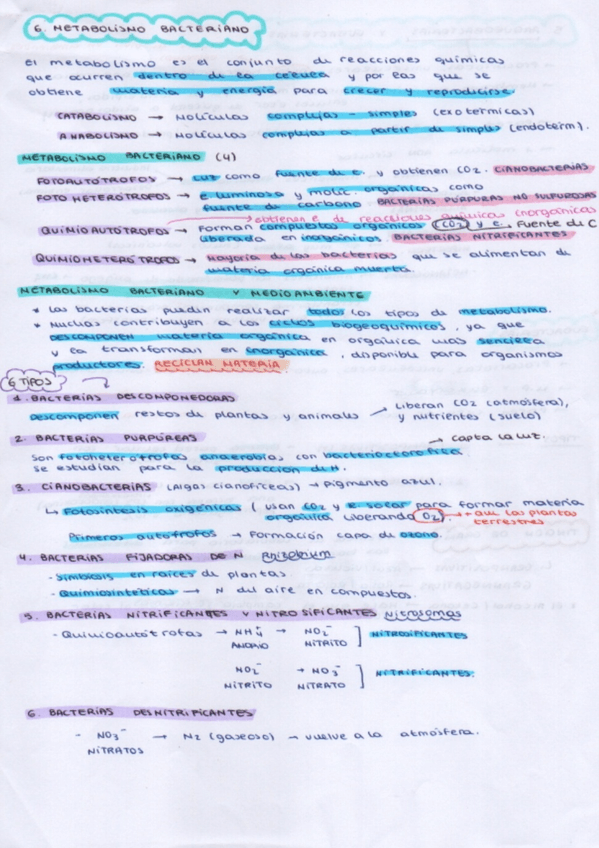 6. METABOLISMO BACTERIANO
El metabolismo es el conjunto de reacciones químicas
que ocurren dentro de la célula y por las que se
obtiene materia y energía para crecer y reproducirse.
CATABOLISMO → Moléculas complejas - simples (exotérmicas)
ANABOLISMO → Moléculas complejas a partir de simples (endotérm).
METABOLISMO BACTERIANO (4)
FOTOAUTÓTROFOS → luz como fuente de e. y obtienen CO2. CIANOBACTERIAS
FOTO HETERÓTROFOS → e luminosa y moléc. orgánicas como
fuente de carbono BACTERIAS PÚRPURAS NO SULFUROSAS
→ obtienen e de reacciones química inorgánicas
QUIMIOAUTÓTROFOS → Forman compuestos orgánicos (CO2) y e. Fuente de C
liberada en inorgánicos. BACTERIAS NITRIFICANTES
QUIMIOHETERÓTROFOS → Mayoría de las bacterias que se alimentan de
materia orgánica muerta
METABOLISMO BACTERIANO Y MEDIO AMBIENTE
* Las bacterias pueden realizar todos los tipos de metabolismo.
* Muchas contribuyen a los ciclos biogeoquímicos, ya que
DESCOMPONEN materia orgánica en orgánica más sencilla
y la transforman en inorgánica, disponible para organismos
productores. RECICLAN MATERIA.
6 TIPOS
1. BACTERIAS DESCOMPONEDORAS
Descomponen restos de plantas y animales → Liberan CO2 (atmósfera),
y nutrientes (suelo)
2. BACTERIAS PURPÚREAS → capta la luz.
Son fotoheterótrofas anaerobias con bacterioclorofila
se estudian para la producción de H.
3. CIANOBACTERIAS (Algas cianofíceas) → pigmento azul.
↳ Fotosíntesis oxigénicas (usan CO2 y e solar para formar materia
orgánica liberando O2). → + que las plantas
terrestres
Primeros autótrofos → Formación capa de ozono.
4. BACTERIAS FIJADORAS DE N Rhizobium
- Simbiosis en raíces de plantas
- Quimiosintéticas → N del aire en compuestos.
5. BACTERIAS NITRIFICANTES Y NITROSIFICANTES Nitrosomas
- Quimioautótrofas → NH4⁻ → NO2⁻ ] NITROSIFICANTES
AMONIO NITRITO
NO2⁻ → NO3⁻ ] NITRIFICANTES.
NITRITO NITRATO
6. BACTERIAS DESNITRIFICANTES
- NO3⁻ → N2 (gaseoso) → vuelve a la atmósfera.
NITRATOS